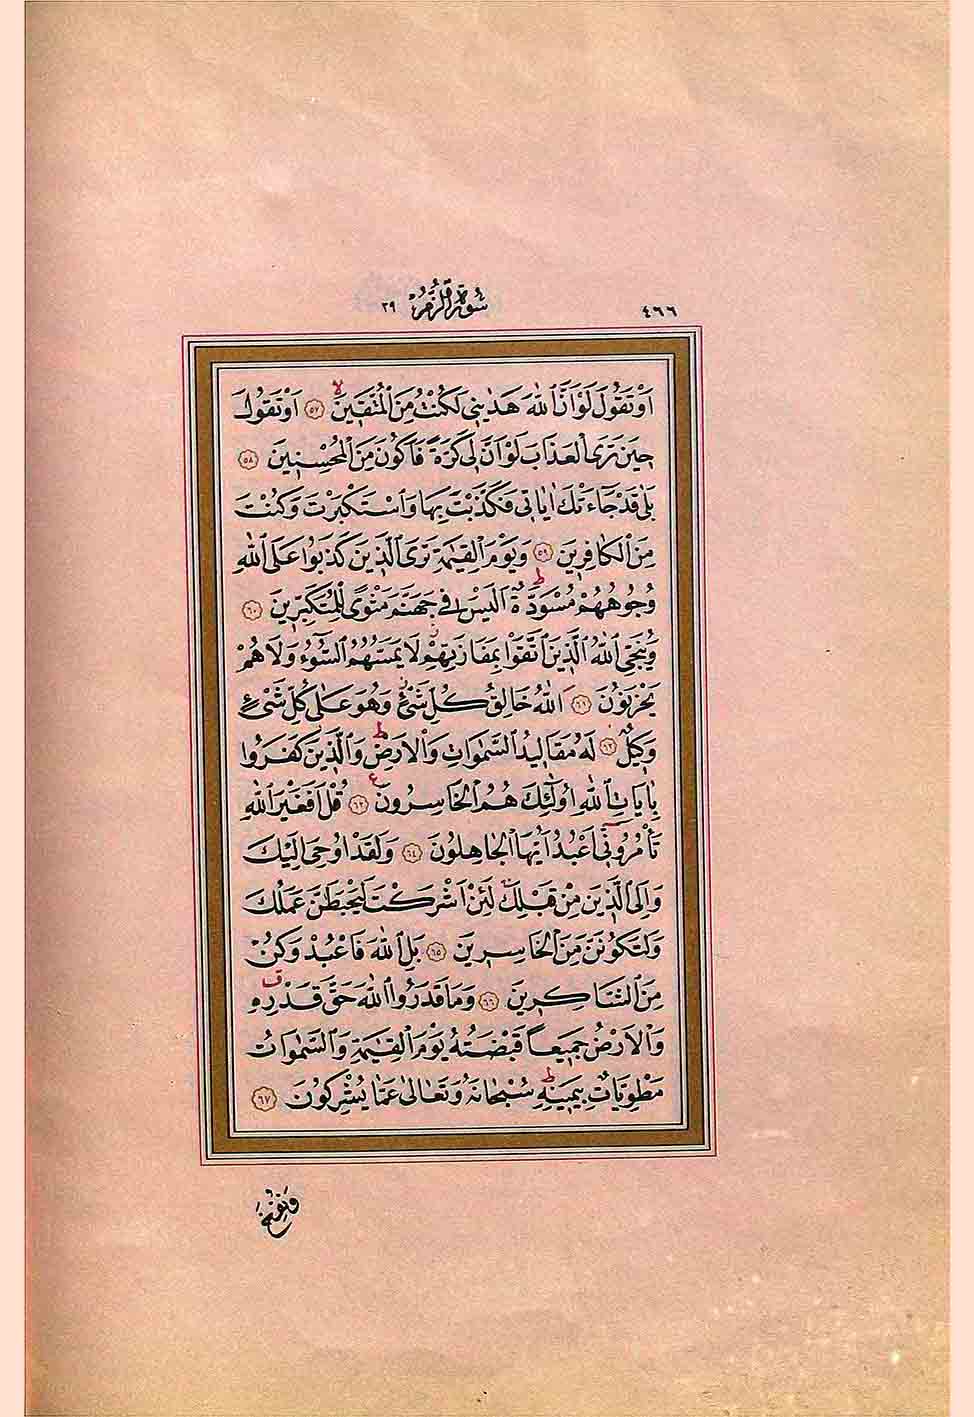 ٤٦٦
سُورَةُ الزُّمَرِ ٣٩
اَوْ تَقُولَ لَوْ اَنَّ اللّٰهَ هَدٰينِي لَكُنْتُ مِنَ الْمُتَّقِينَۙ ٥٧ اَوْ تَقُولَ
حِينَ تَرَى الْعَذَابَ لَوْ اَنَّ لِي كَرَّةً فَاَكُونَ مِنَ الْمُحْسِنِينَ ٥٨
بَلٰى قَدْ جَٓاءَتْكَ اٰيَاتِي فَكَذَّبْتَ بِهَا وَاسْتَكْبَرْتَ وَكُنْتَ
مِنَ الْكَافِرِينَ ٥٩ وَيَوْمَ الْقِيٰمَةِ تَرَى الَّذِينَ كَذَبُوا عَلَى اللّٰهِ
وُجُوهُهُمْ مُسْوَدَّةٌۜ اَلَيْسَ فِي جَهَنَّمَ مَثْوًى لِلْمُتَكَبِّرِينَ ٦٠
وَيُنَجِّي اللّٰهُ الَّذِينَ اتَّقَوْا بِمَفَازَتِهِمْۘ لَا يَمَسُّهُمُ السُّٓوءُ وَلَا هُمْ
يَحْزَنُونَ ٦١ اَللّٰهُ خَالِقُ كُلِّ شَيْءٍۘ وَهُوَ عَلٰى كُلِّ شَيْءٍ
وَكِيلٌ ٦٢ لَهُ مَقَالِيدُ السَّمٰوَاتِ وَالْاَرْضِۜ وَالَّذِينَ كَفَرُوا
بِاٰيَاتِ اللّٰهِ اُولٰٓئِكَ هُمُ الْخَاسِرُونَ ع ٦٣ قُلْ اَفَغَيْرَ اللّٰهِ
تَأْمُرُٓونِّٓي اَعْبُدُ اَيُّهَا الْجَاهِلُونَ ٦٤ وَلَقَدْ اُوحِيَ اِلَيْكَ
وَاِلَى الَّذِينَ مِنْ قَبْلِكَۚ لَئِنْ اَشْرَكْتَ لَيَحْبَطَنَّ عَمَلُكَ
وَلَتَكُونَنَّ مِنَ الْخَاسِرِينَ ٦٥ بَلِ اللّٰهَ فَاعْبُدْ وَكُنْ
مِنَ الشَّاكِرِينَ ٦٦ وَمَا قَدَرُوا اللّٰهَ حَقَّ قَدْرِهِۗ
وَالْاَرْضُ جَمِيعًا قَبْضَتُهُ يَوْمَ الْقِيٰمَةِ وَالسَّمٰوَاتُ
مَطْوِيَّاتٌ بِيَمِينِهِۜ سُبْحَانَهُ وَتَعَالٰى عَمَّا يُشْرِكُونَ ٦٧
وَنُفِخَ